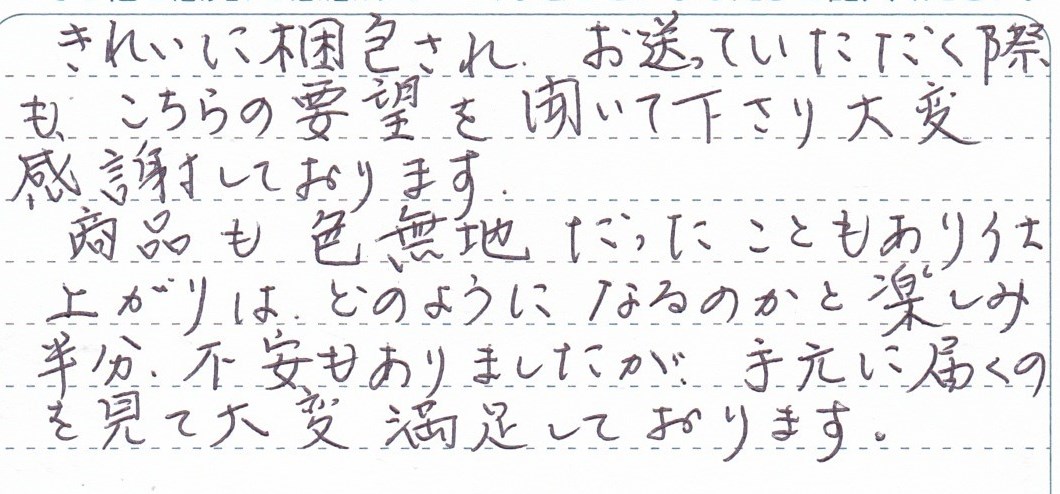 きれいに梱包され、お送っていただく際
も、こちらの要望を聞いて下さり大変
感謝しております。
商品も色無地だったこともあり仕
上がりは、どのようになるのかと楽しみ
半分、不安もありましたが、手元に届くの
を見て大変満足しております。